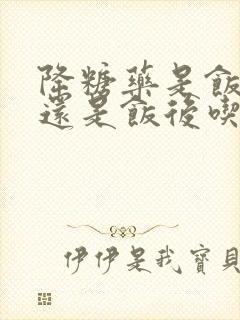 降糖藥是飯
還是飯後喫
伊伊是我寶貝